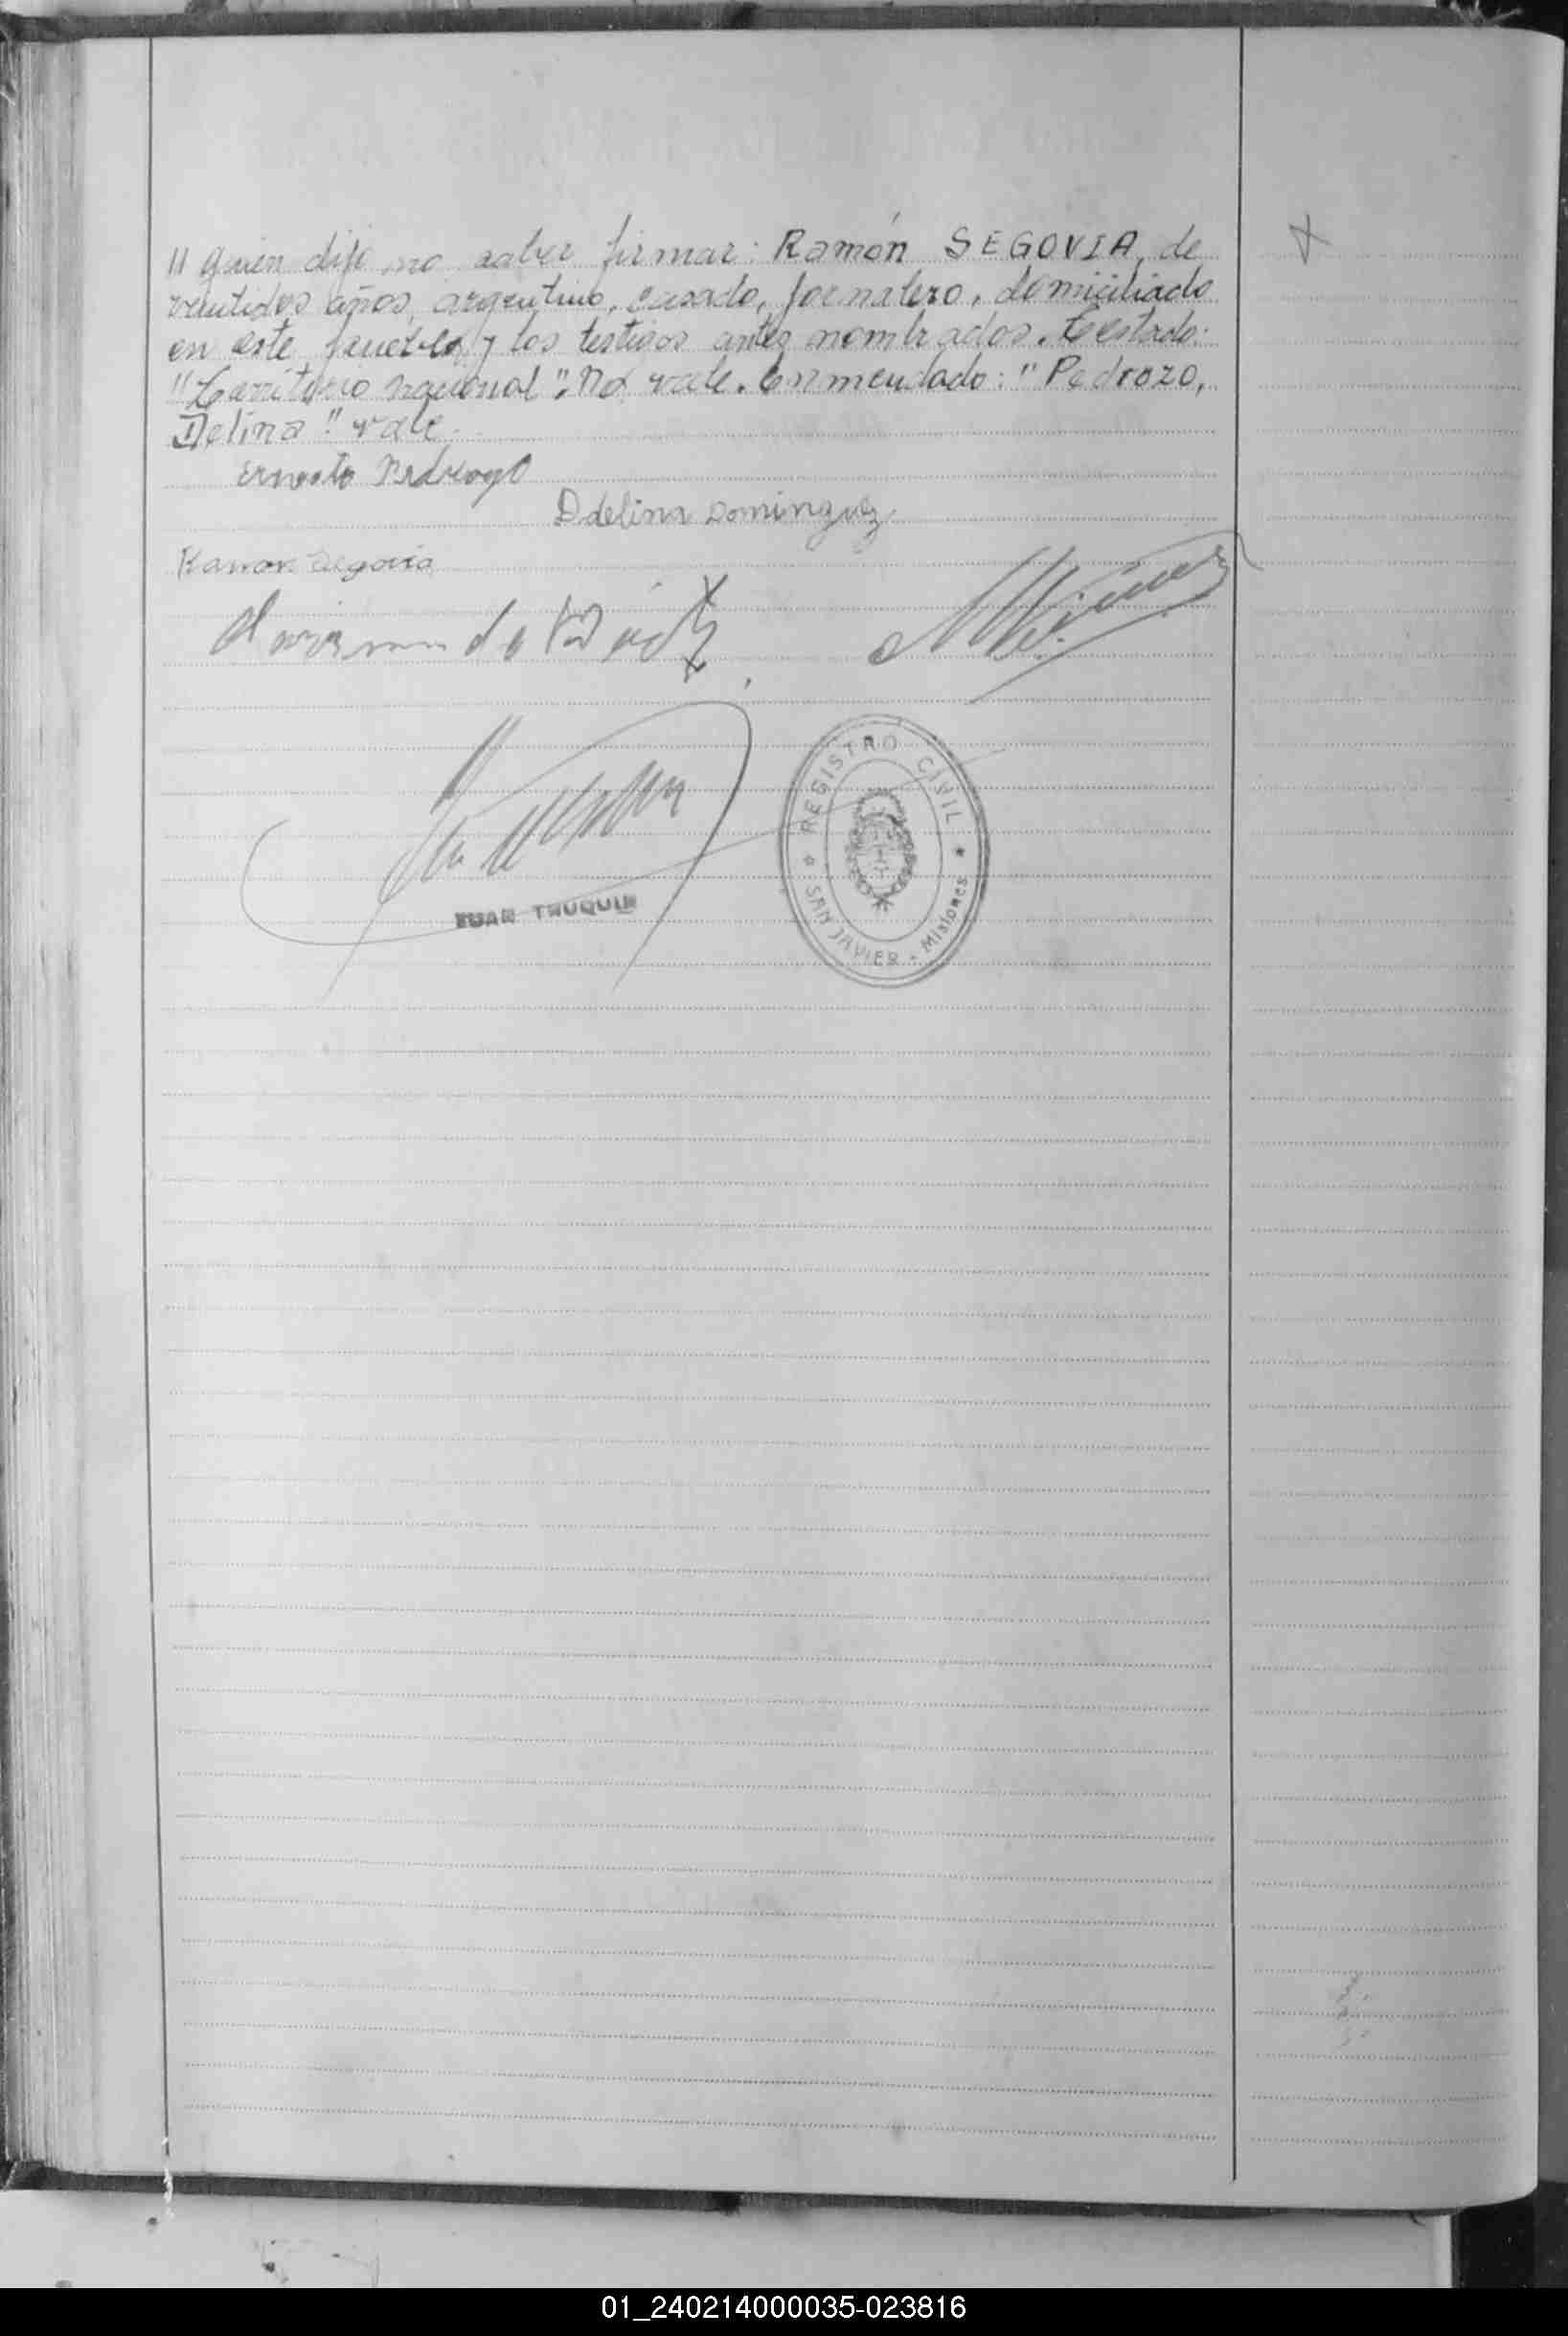 // quien dijo no saber firmar: Ramón SEGOVIA, de
ventidos años, argentino, casado, jornalero, domiciliado
en este pueblo, y los testigos antes nombrados. Testado:
"Territorio nacional", No vale. Enmendado: "Pedrozo,
Delina" vale.
Ernesto Pedrozo
Ddelina Dominguez
Ramon Segovia
JUAN TRUQUIN
REGISTRO CIVIL
SAN JAVIER - Misiones
01_240214000035-023816